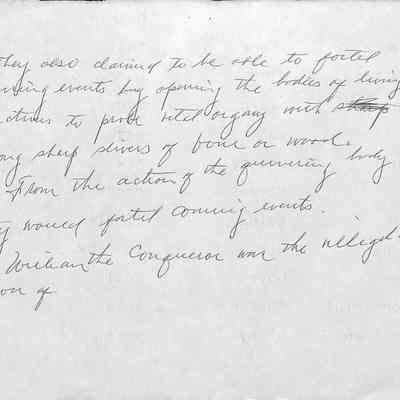 they also claimed to be able to fortel
coming events by opening the bodies of living
victims to prob vital organs with sharp
long sharp slivers of bone or wood.
From the action of the quivering body
they would fortel coming events.
William the Conqueror was the illegit.
son of